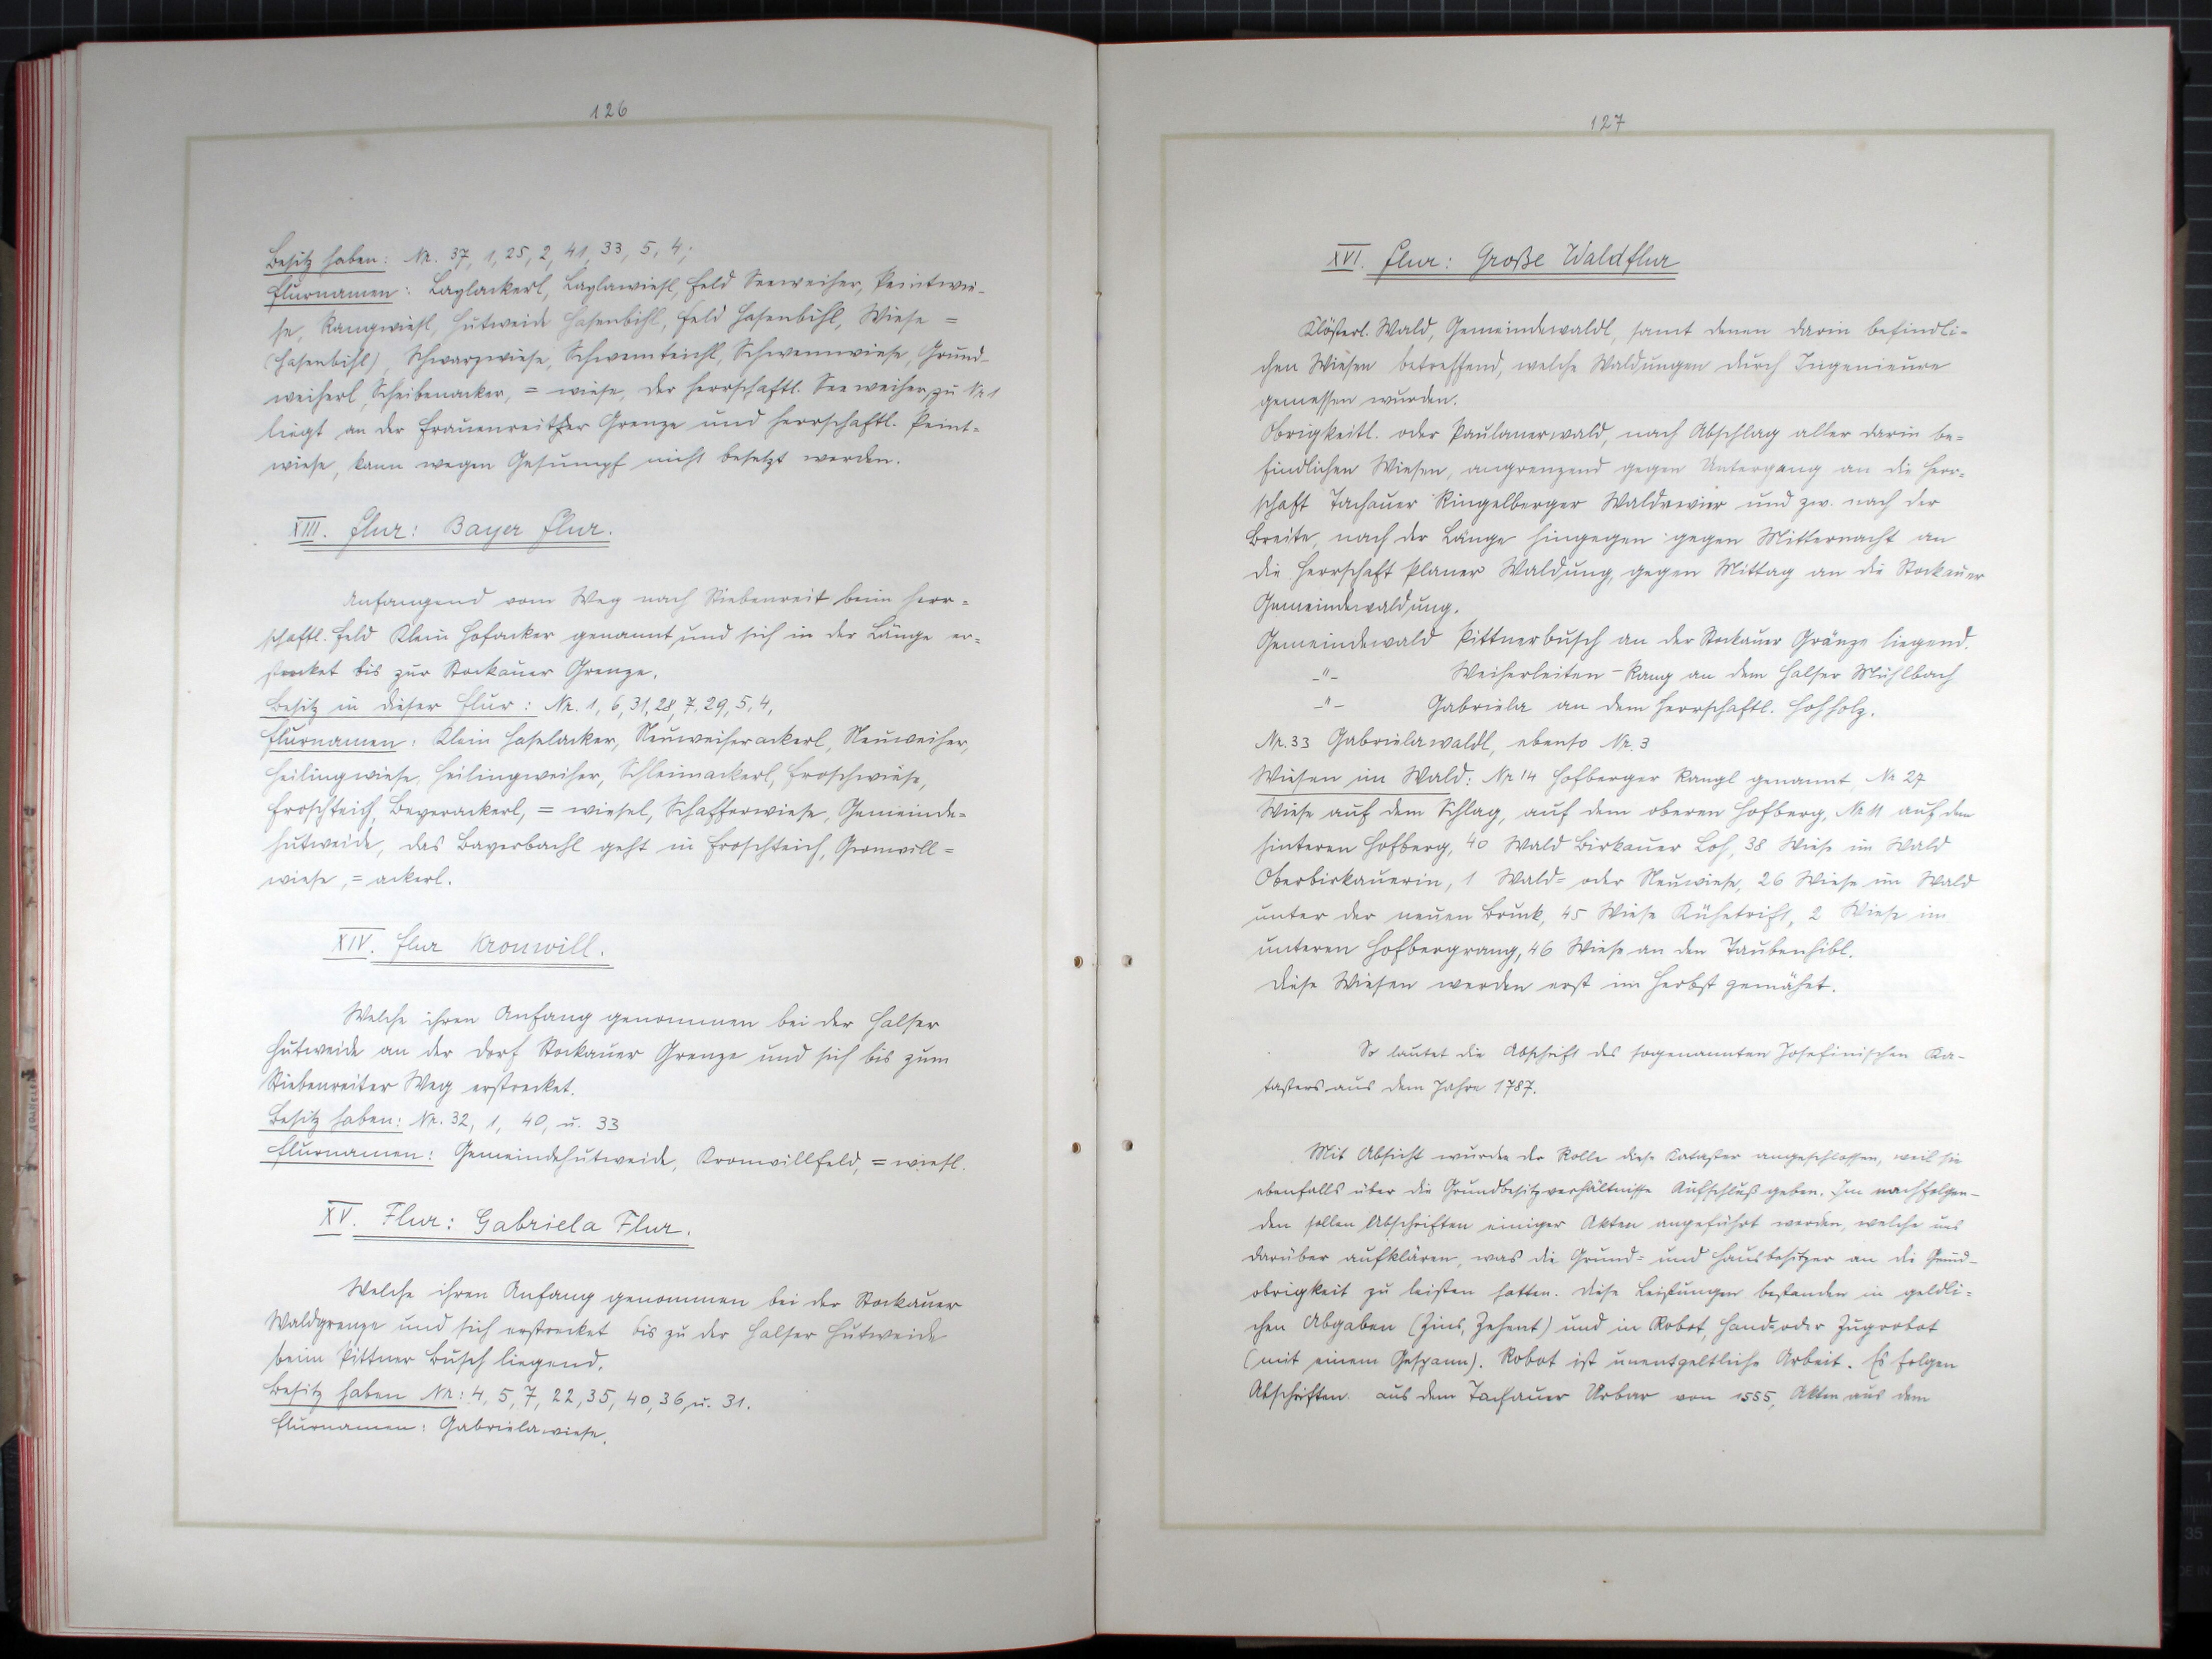 126
Besitz haben: Nr. 37, 1, 25, 2, 41, 33, 5, 4;
Flurnamen: Laglackerl, Laglawiesl, Feld Seeweiher, Peintwie-
se, Rangwiesl, Hutweide Hasenbihl, Feld Hasenbihl, Wiese =
(Hasenbihl), Schwarzwiese, Schwemteichl, Schwemmwiese, Grund-
weiherl, Scheibenacker, = wiese, der herrschaftl. Seeweiher, zu Nr 1
liegt an der Frauenreither Grenze und herrschaftl. Peint-
wiese, kann wegen Gesumpf nicht besetzt werden.
XIII. Flur: Bayer Flur.
Anfangend vom Weg nach Siebenreit beim herr-
schaftl. Feld Klein Hofacker genannt und sich in der Länge er-
strecket bis zur Stockauer Grenze.
Besitz in dieser Flur: Nr. 1, 6, 31, 28, 7, 29, 5, 4,
Flurnamen: Klein Haselacker, Neuweiherackerl, Neuweiher,
Heilingwiese, Heilingweiher, Schleimackerl, Froschwiese,
Froschteich, Beyerackerl, = wiesel, Schafferwiese, Gemeinde-
hutweide, das Bayerbachl geht in Froschteich, Gronwill =
wiese, = ackerl.
XIV. Flur Kronwill.
Welche ihren Anfang genommen bei der Halser
Hutweide an der Dorf Stockauer Grenze und sich bis zum
Siebenreiter Weg erstrecket.
Besitz haben: Nr. 32, 1, 40, u. 33
Flurnamen: Gemeindehutweide, Kronwillfeld, = wiesl.
XV. Flur: Gabriela Flur.
Welche ihren Anfang genommen bei der Stockauer
Waldgrenze und sich erstrecket bis zu der Halser Hutweide
beim Pittner Busch liegend.
Besitz haben Nr: 4, 5, 7, 22, 35, 40, 36, u. 31.
Flurnamen: Gabrielawiese.
127
XVI. Flur: Große Waldflur
Klösterl. Wald, Gemeindewaldl, samt denen darin befindli-
chen Wiesen betreffend, welche Waldungen durch Ingenieure
gemessen wurden.
Obrigkeitl. oder Paulanerwald, nach Abschlag aller darin be-
findlichen Wiesen, angrenzend gegen Untergang an die Herr-
schaft Tachauer Ringelberger Waldrevier und zw. nach der
Breite, nach der Länge hingegen gegen Mitternacht an
die Herrschaft Planer Waldung, gegen Mittag an die Stockauer
Gemeindewaldung.
Gemeindewald Pittnerbusch an der Stockauer Gränze liegend.
-"- Weiherleiten - Rang an dem Halser Mühlbach
-"- Gabriela an dem herrschaftl. Hohholz.
Nr. 33 Gabrielawaldl, ebenso Nr. 3
Wiesen im Wald: Nr 14 Hofberger Rangl genannt, Nr 27
Wiese auf dem Schlag, auf dem oberen Hofberg, Nr 11 auf dem
hinteren Hofberg, 40 Wald Birkauer Loh, 38 Wiese im Wald
Oberbirkauerin, 1 Wald= oder Neuwiese, 26 Wiese im Wald
unter der neuen Bruck, 45 Wiese Kühetrift, 2 Wiese im
unteren Hofbergrang, 46 Wiese an den Taubenhibl.
Diese Wiesen werden erst im Herbst gemähet.
So lautet die Abschrift des sogenannten Josefinischen Ka-
tasters aus dem Jahre 1787.
Mit Absicht wurden der Rolle diese Kataster angeschlossen, weil sie
ebenfalls über die Grundbesitzverhältnisse Aufschluß geben. Im nachfolgen-
den sollen Abschriften einiger Akten angeführt werden, welche uns
darüber aufklären, was die Grund= und Hausbesitzer an die Grund-
obrigkeit zu leisten hatten. Diese Leistungen bestanden in geldli-
chen Abgaben (Zins, Zehent) und in Robot, Hand= oder Zugrobot
(mit einem Gespann). Robot ist unentgeltliche Arbeit. Es folgen
Abschriften aus dem Tachauer Urbar von 1555, Akten aus dem